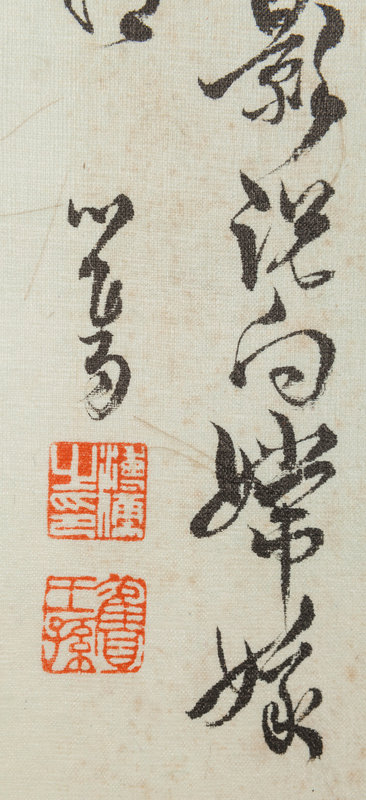 影說向嫦娥
心畬
溥儒之印
舊王孫